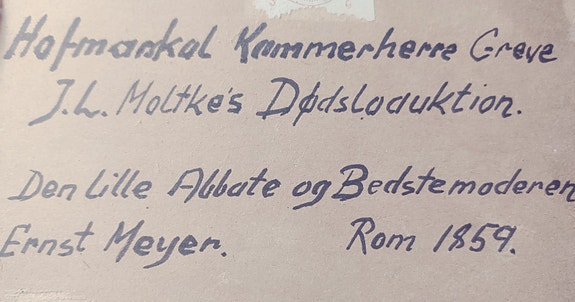 Hofmarskal Kammerherre Greve
J.L. Moltke's Dødsboauktion.
Den lille Abbate og Bedstemoderen
Ernst Meyer. Rom 1859.